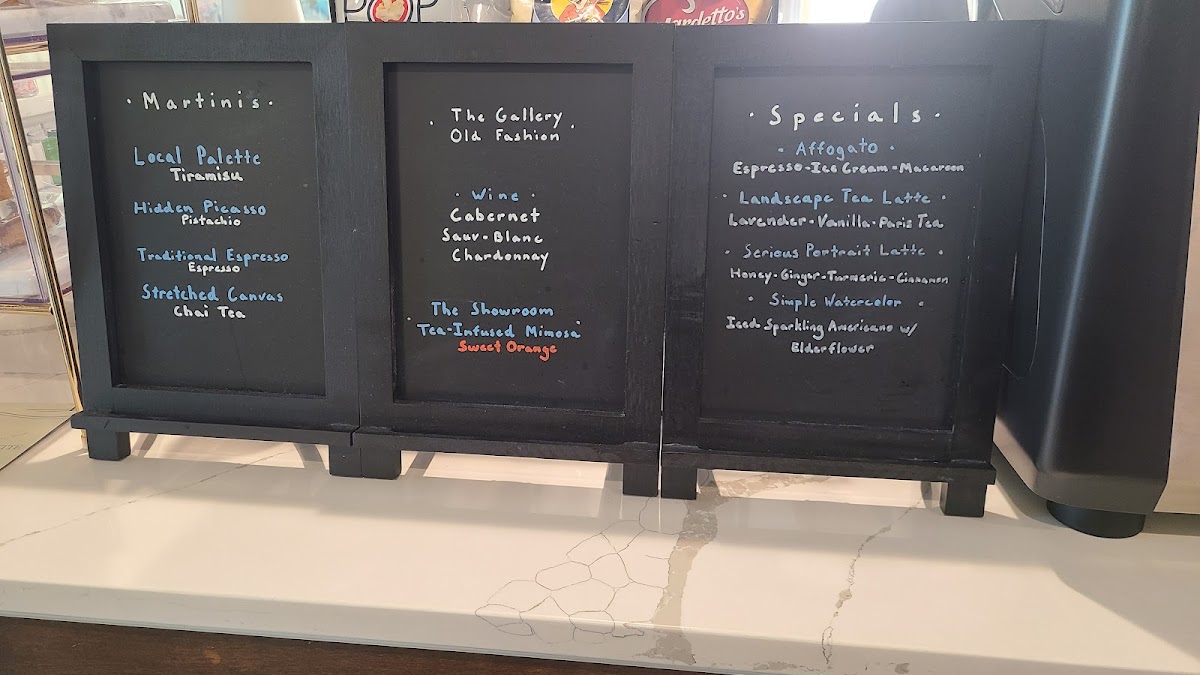 POP
Gardetto's
· Martinis ·
Local Palette
Tiramisu
Hidden Picasso
Pistachio
Traditional Espresso
Espresso
Stretched Canvas
Chai Tea
· The Gallery
Old Fashion ·
· Wine ·
Cabernet
Sauv-Blanc
Chardonnay
The Showroom
· Tea-Infused Mimosa ·
Sweet Orange
· Specials ·
· Affogato ·
Espresso-Ice Cream-Macaroon
· Landscape Tea Latte ·
Lavender-Vanilla-Paris Tea
· Serious Portrait Latte ·
Honey-Ginger-Turmeric-Cinnamon
· Simple Watercolor ·
Iced-Sparkling Americano w/
Elderflower